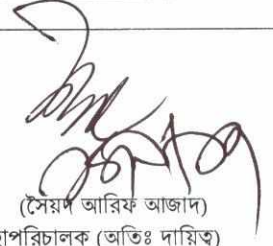 (সৈয়দ আরিফ আজাদ)
হাপরিচালক (অতিঃ দায়িত্ব)